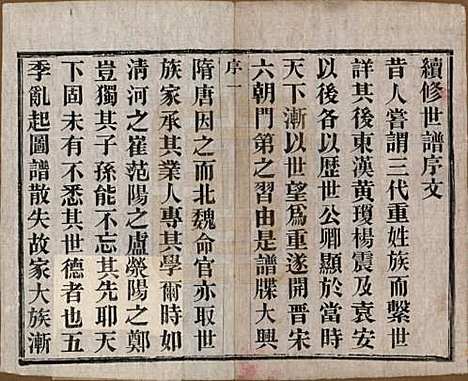 續修世譜序文
昔人嘗謂三代重姓族而繫世
詳其後東漢黃瓊楊震及袁安
以後各以歷世公卿顯於當時
天下漸以世望爲重遂開晉宋
六朝門第之習由是譜牒大興
序一
隋唐因之而北魏命官亦取世
族家承其業人專其學爾時如
淸河之崔范陽之盧滎陽之鄭
豈獨其子孫能不忘其先耶天
下固未有不悉其世德者也五
季亂起圖譜散失故家大族漸